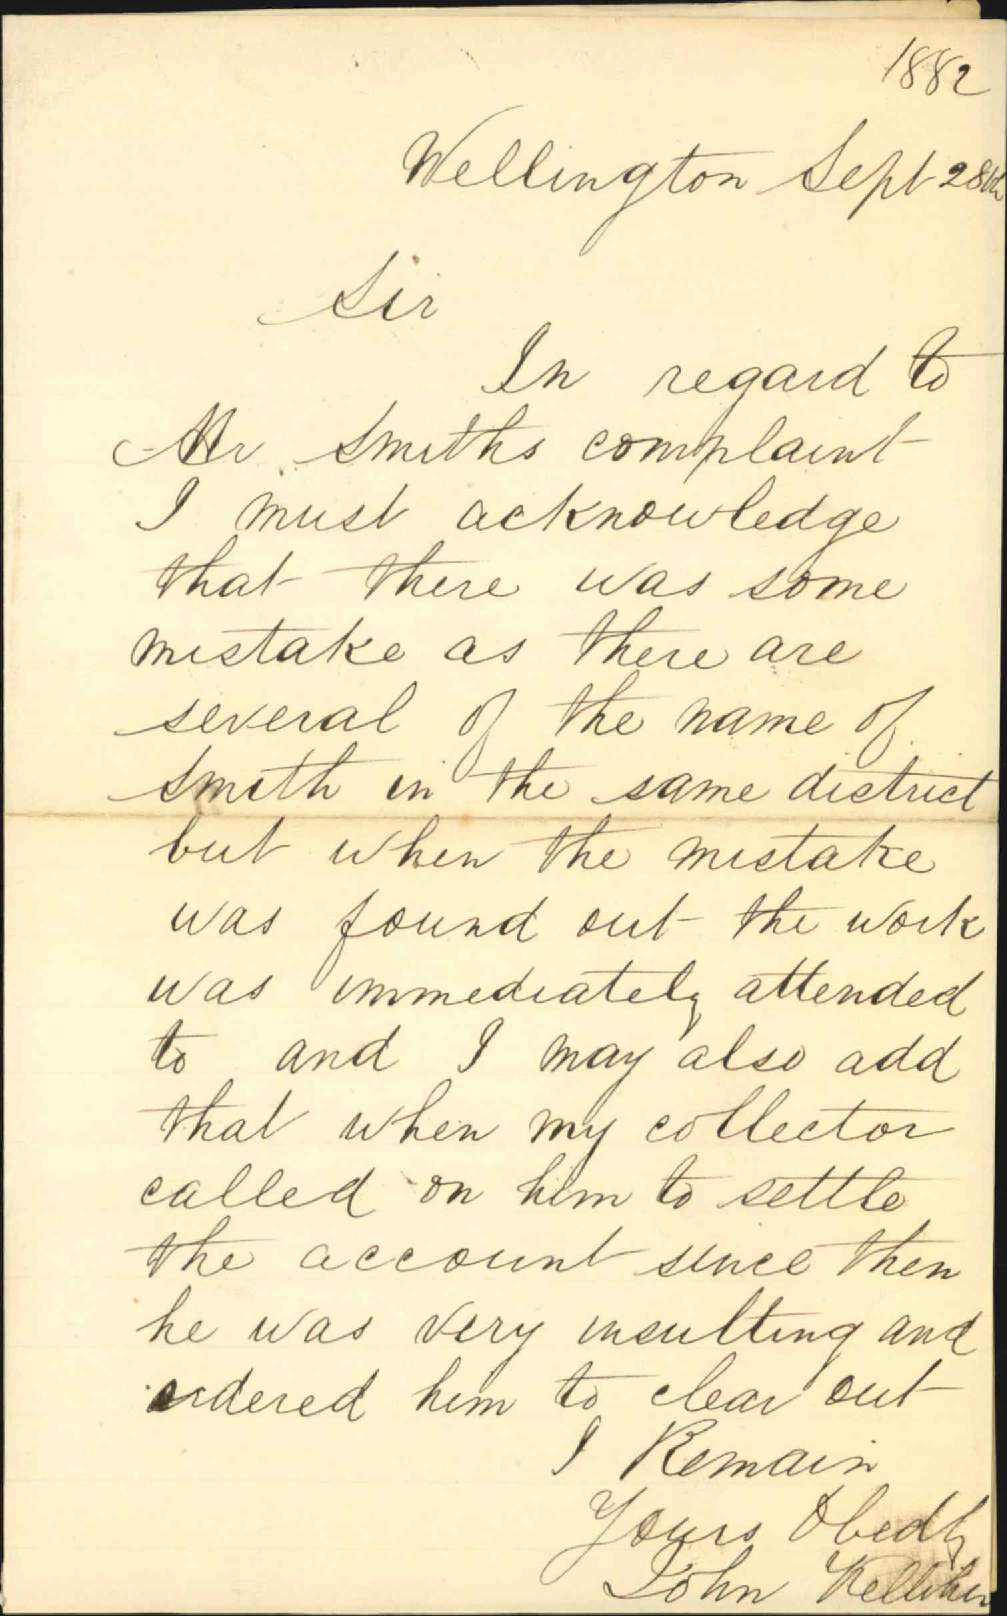 1882
Wellington Sept 28th
Sir
In regard to
Mr Smiths complaint
I must acknowledge
that there was some
mistake as there are
several of the name of
Smith in the same district
but when the mistake
was found out the work
was immediately attended
to and I may also add
that when my collector
called on him to settle
the account since then
he was very insulting and
ordered him to clear out
I Remain
Yours Obedtly
John Kelliher